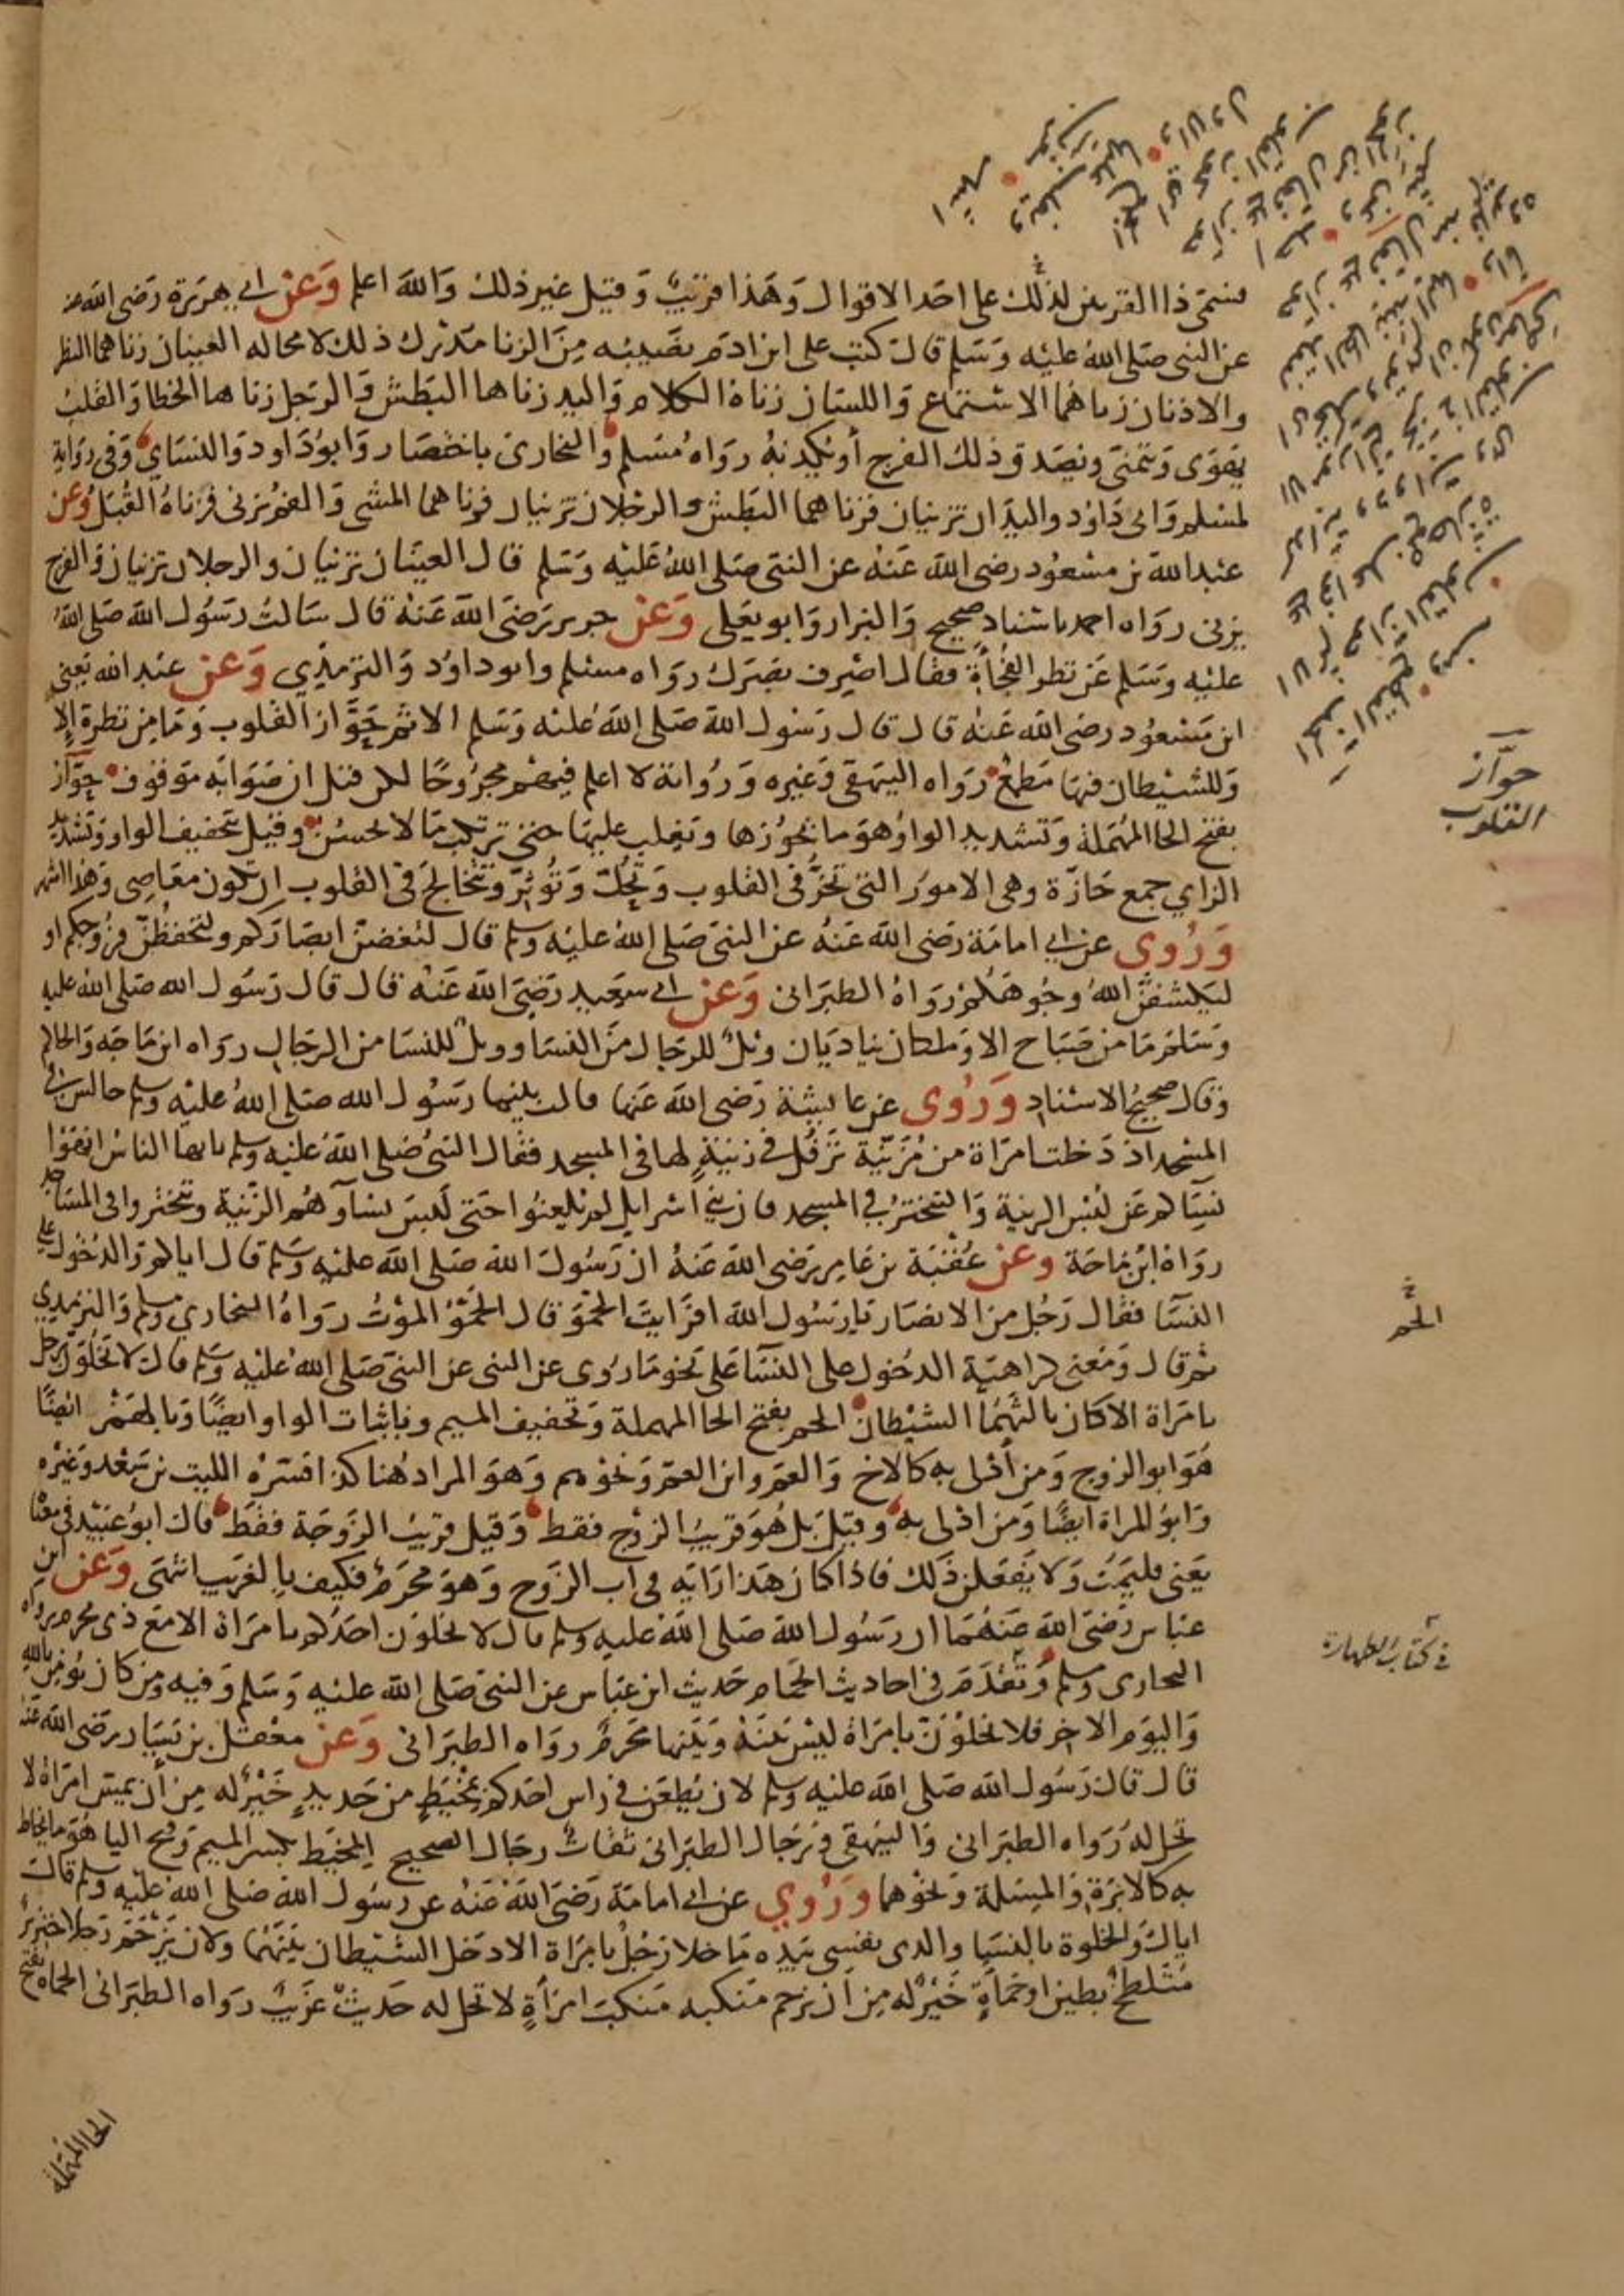 فسمى ذا القرنين لذلك على احد الاقوال وَهَذا قريبٌ وَقيل غير ذلك وَالله اعلم وَعَنْ ابي هريرة رَضى الله عنه
عن النبى صَلى اللهُ عليْه وَسَلم قال كتب على ابن ادم نصَيبُه مِنَ الزنا مُدْرك ذلك لا محاله العينان زناهما النظر
والاذنان زناهُما الاسْتماع وَاللسَان زناهُ الكلام وَاليد زناها البَطش وَالرجل زناها الخطا وَالقلبُ
يهوَى وَيتمنى ويُصَدق ذلك الفرج أو يُكذبُهُ روَاه مُسْلم وَالبخارى باختصار وَابوُ دَاود وَالنسَاي وَفى روَاية
لمسْلم وَابى دَاوُد واليدَان تزنيَان فزناهما البَطش والرجْلان تزنيان فزناهما المشى وَالفم يزنى فزناهُ القُبَل وَعن
عَبْد الله بن مسْعُود رضى الله عَنهُ عن النبى صَلى اللهُ عَليْه وَسَلم قال العيْنان تزنيَان والرجلان تزنيان وَالفرج
يزنى روَاه احمد باسْناد صحيح وَالبزار وَابو يعَلى وَعَنْ جرير رَضَى الله عَنهُ قال سَالتُ رَسُول الله صَلى اللهُ
عليْه وَسَلم عَن نظر الفُجْأةِ فقال اصْرِف بصَرك روَاه مسلم وابو داوُد وَالترمذي وَعَن عَبْد الله يَعنى
ابن مَسْعُود رضى الله عَنهُ قال قال رَسُول الله صَلى الله عليْه وَسَلم الاثم حَوَّاز القلوب وَمَا مِن نظرة إلا
وَللشيْطان فيهَا مَطمعٌ روَاه البيهقى وَغيره وَرُواتهُ لا اعلم فيهم مجرُوحًا لكن قيل ان صَوَابَه مَوقوف حَوَّاز
بفتح الحا المُهمَلة وَتشديد الواوُ هوَ ما يحُوُزها ويَغلب عليهَا حتى ترتكب مَا لا يحسُنُ وقيل بتخفيف الواو وَتشديد
الزاي جمع حَازّة وهى الامورُ التى تحُزُّ فى القلوب وَتَحُكّ وَتُؤثِرُ وتتخالجَ فى القلوب ان تكون معَاصِى وَهذا اشهر
وَرُوى عن ابي امامَة رَضى الله عَنهُ عن النبى صَلى اللهُ عليْه وسلم قال لتغضنّ ابصَارَكم ولتحفظُنّ فرُوجكم او
ليَكشفنَّ اللهُ وجُوهَكم روَاهُ الطبَرانى وَعَنْ ابي سَعيد رَضىَ الله عَنهُ قال قال رَسُول الله صَلى اللهُ عليه
وَسَلم مَا من صَبَاح الا وَملكان يناديَان ويْلٌ للرجَال منَ النسَا وويلٌ للنسَا من الرجَال روَاه ابن مَاجَه وَالحاكم
وَقال صحيحُ الاسْناد وَرُوى عن عايشة رَضى الله عَنهَا قالت بينما رَسُول الله صَلى اللهُ عليْه وسلم جالس في
المسْجد اذ دَخلت امرَاة من مُزَيْنة تَرْفُلُ فى زينةٍ لها فى المسجد فقال النبىُ صَلى اللهُ عليْه وسلم يا ايها الناسُ انهَوْا
نسَاكم عَن لُبْس الزينة وَالتبختر في المسجد فان بني اسْرايل لم يُلعنُوا حَتى لَبسَ نساوُهُم الزّينة وتبخترُوا فى المسَاجد
روَاهُ ابْن مَاجَة وعَن عُقْبَة بن عَامِر رَضى الله عَنهُ ان رَسُول الله صَلى الله عليْه وَسَلم قال اياكم وَالدُخول على
النسَا فقال رَجُل من الانصَار يَا رَسُول الله افرَايت الحَمْوَ قال الحَمْوُ المَوْتُ روَاهُ البخارى ومسلم وَالترمذي
ثم قال وَمَعنى كراهيَة الدخول على النسَا عَلى نحو مَا رُوى عن النبى عن النبى صَلى اللهُ عليْه وسلم قال لا يخلوَنّ رجل
بامرَاة الا كان ثالثهمَا الشيْطان الحم بفتح الحا المهملة وَتخفيف الميم وباثبات الواو ايضًا وَبالهمْز ايضًا
هُوَ ابو الزوج وَمن أدْلى به كالاخ وَالعمّ وابن العمّ وَنحْوهم وَهوَ المراد هُنا كذا فسّرَهُ الليث بن سَعْد وَغيْره
وَابوُ المراة ايضًا وَمن ادْلى به وقيل بَل هُوَ قريبُ الزوْج فقط وَقيل قريبُ الزوجَة فقط قال ابوُ عُبَيْد فى معْناه
يَعنى فليَمُتْ وَلا يَفعَلن ذَلك فاذا كان هَذا رَايَه فى اب الزَّوج وَهوَ محرَمٌ فكيف بالغَريب انتهَى وَعَن ابن
عَباس رَضىَ الله عَنهُمَا ان رَسُول الله صَلى اللهُ عليه وسلم قال لا يخلوَن احَدكم بامرَاة الا مَعَ ذى محرم روَاه
البخارى ومسلم وَتقدَمَ فى احاديث الحَمام حَديث ابن عَبَاس عن النبىَ صَلى الله عليْه وَسَلم وَفيه وَمن كان يُومن بالله
وَاليوَم الاخِر فلا يخلوَنّ بامرَاة ليْس بَينهُ وَبَيْنها مَحْرَمٌ روَاه الطبَرانى وَعَنْ معْقل بن يَسَار رَضى الله عنه
قال قال رَسُول الله صَلى الله عليْه وسلم لان يُطعَن فى راس احَدكم بمخْيَطٍ من حَديدٍ خَيْرٌ له مِن أن يمس امرَاة لا
تحل له روَاه الطبرانى وَالبيهقى وَرجَال الطبرانى ثقاتٌ رجَال الصحيح المِخيَط بكسر الميم وَفتح اليا هُوَ ما يخاط
به كالابرَة وَالمِسَلة وَنحْوهما وَرُوي عن ابي امامَة رَضىَ الله عَنهُ عن رسُول الله صَلى الله عليْه وسلم قال
اياك وَالخلوَة بالنسَا والذى نفسى بيَده مَا خلا رَجُلٌ بامرَاة الا دَخل الشيْطان بَيْنهُمَا ولان يَزْحَمَ رَجلا خنزيرٌ
مُتلطخٌ بطين او حَمأةٍ خَيْرٌ له مِن أن يزحم مَنكبه مَنكبَ امرَأةٍ لا تحل له حَديثٌ غَريبٌ روَاه الطبَرانى الحماه بفتح
الحا المهمَلة
حوَّاز
القلوب
الحم
في كتاب الطهارة